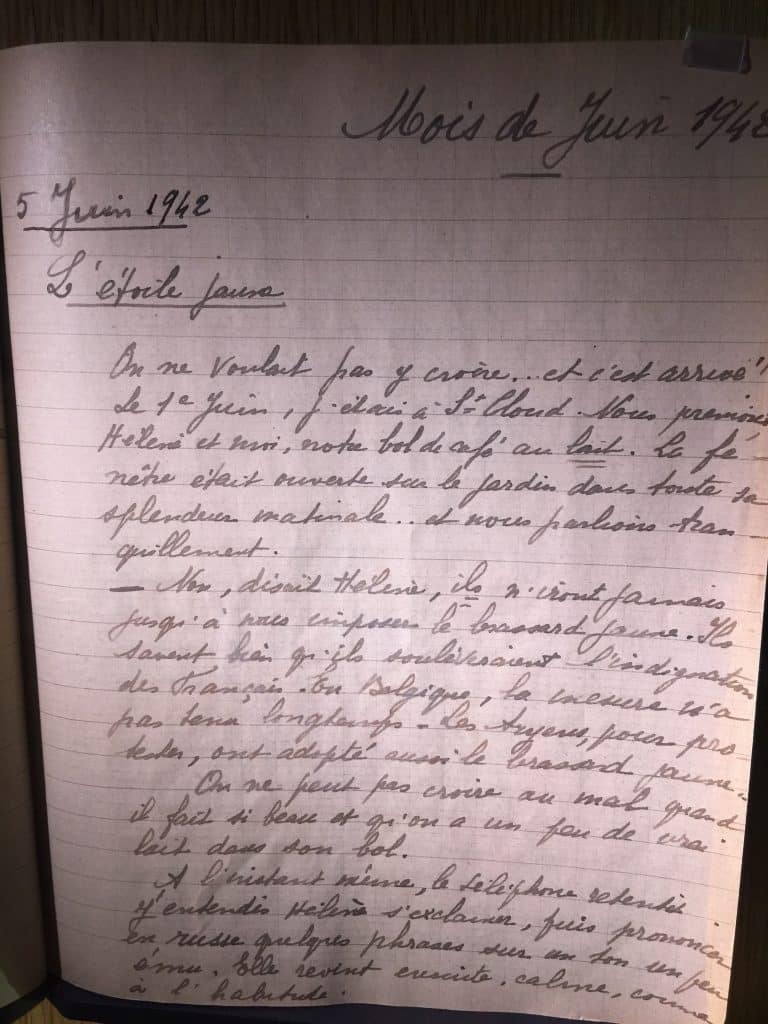 Mois de Juin 1942
5 Juin 1942
L'étoile jaune
On ne voulait pas y croire... et c'est arrivé!
Le 1er Juin, j'étais à St Cloud. Nous prenions
Hélène et moi, notre bol de café au lait. La fe-
nêtre était ouverte sur le jardin dans toute sa
splendeur matinale.. et nous parlions tran-
quillement.
— Non, disait Hélène, ils n'iront jamais
jusqu'à nous imposer le brassard jaune. Ils
savent bien qu'ils soulèveraient l'indignation
des Français. En Belgique, la mesure n'a
pas tenu longtemps - Les Aryens, pour pro-
tester, ont adopté aussi le brassard jaune.
On ne peut pas croire au mal quand
il fait si beau et qu'on a un peu de vrai
lait dans son bol.
A l'instant même, le téléphone retentit
J'entendis Hélène s'exclamer, puis prononcer
en russe quelques phrases sur un ton un peu
ému. Elle revint ensuite. calme, comme
à l'habitude.